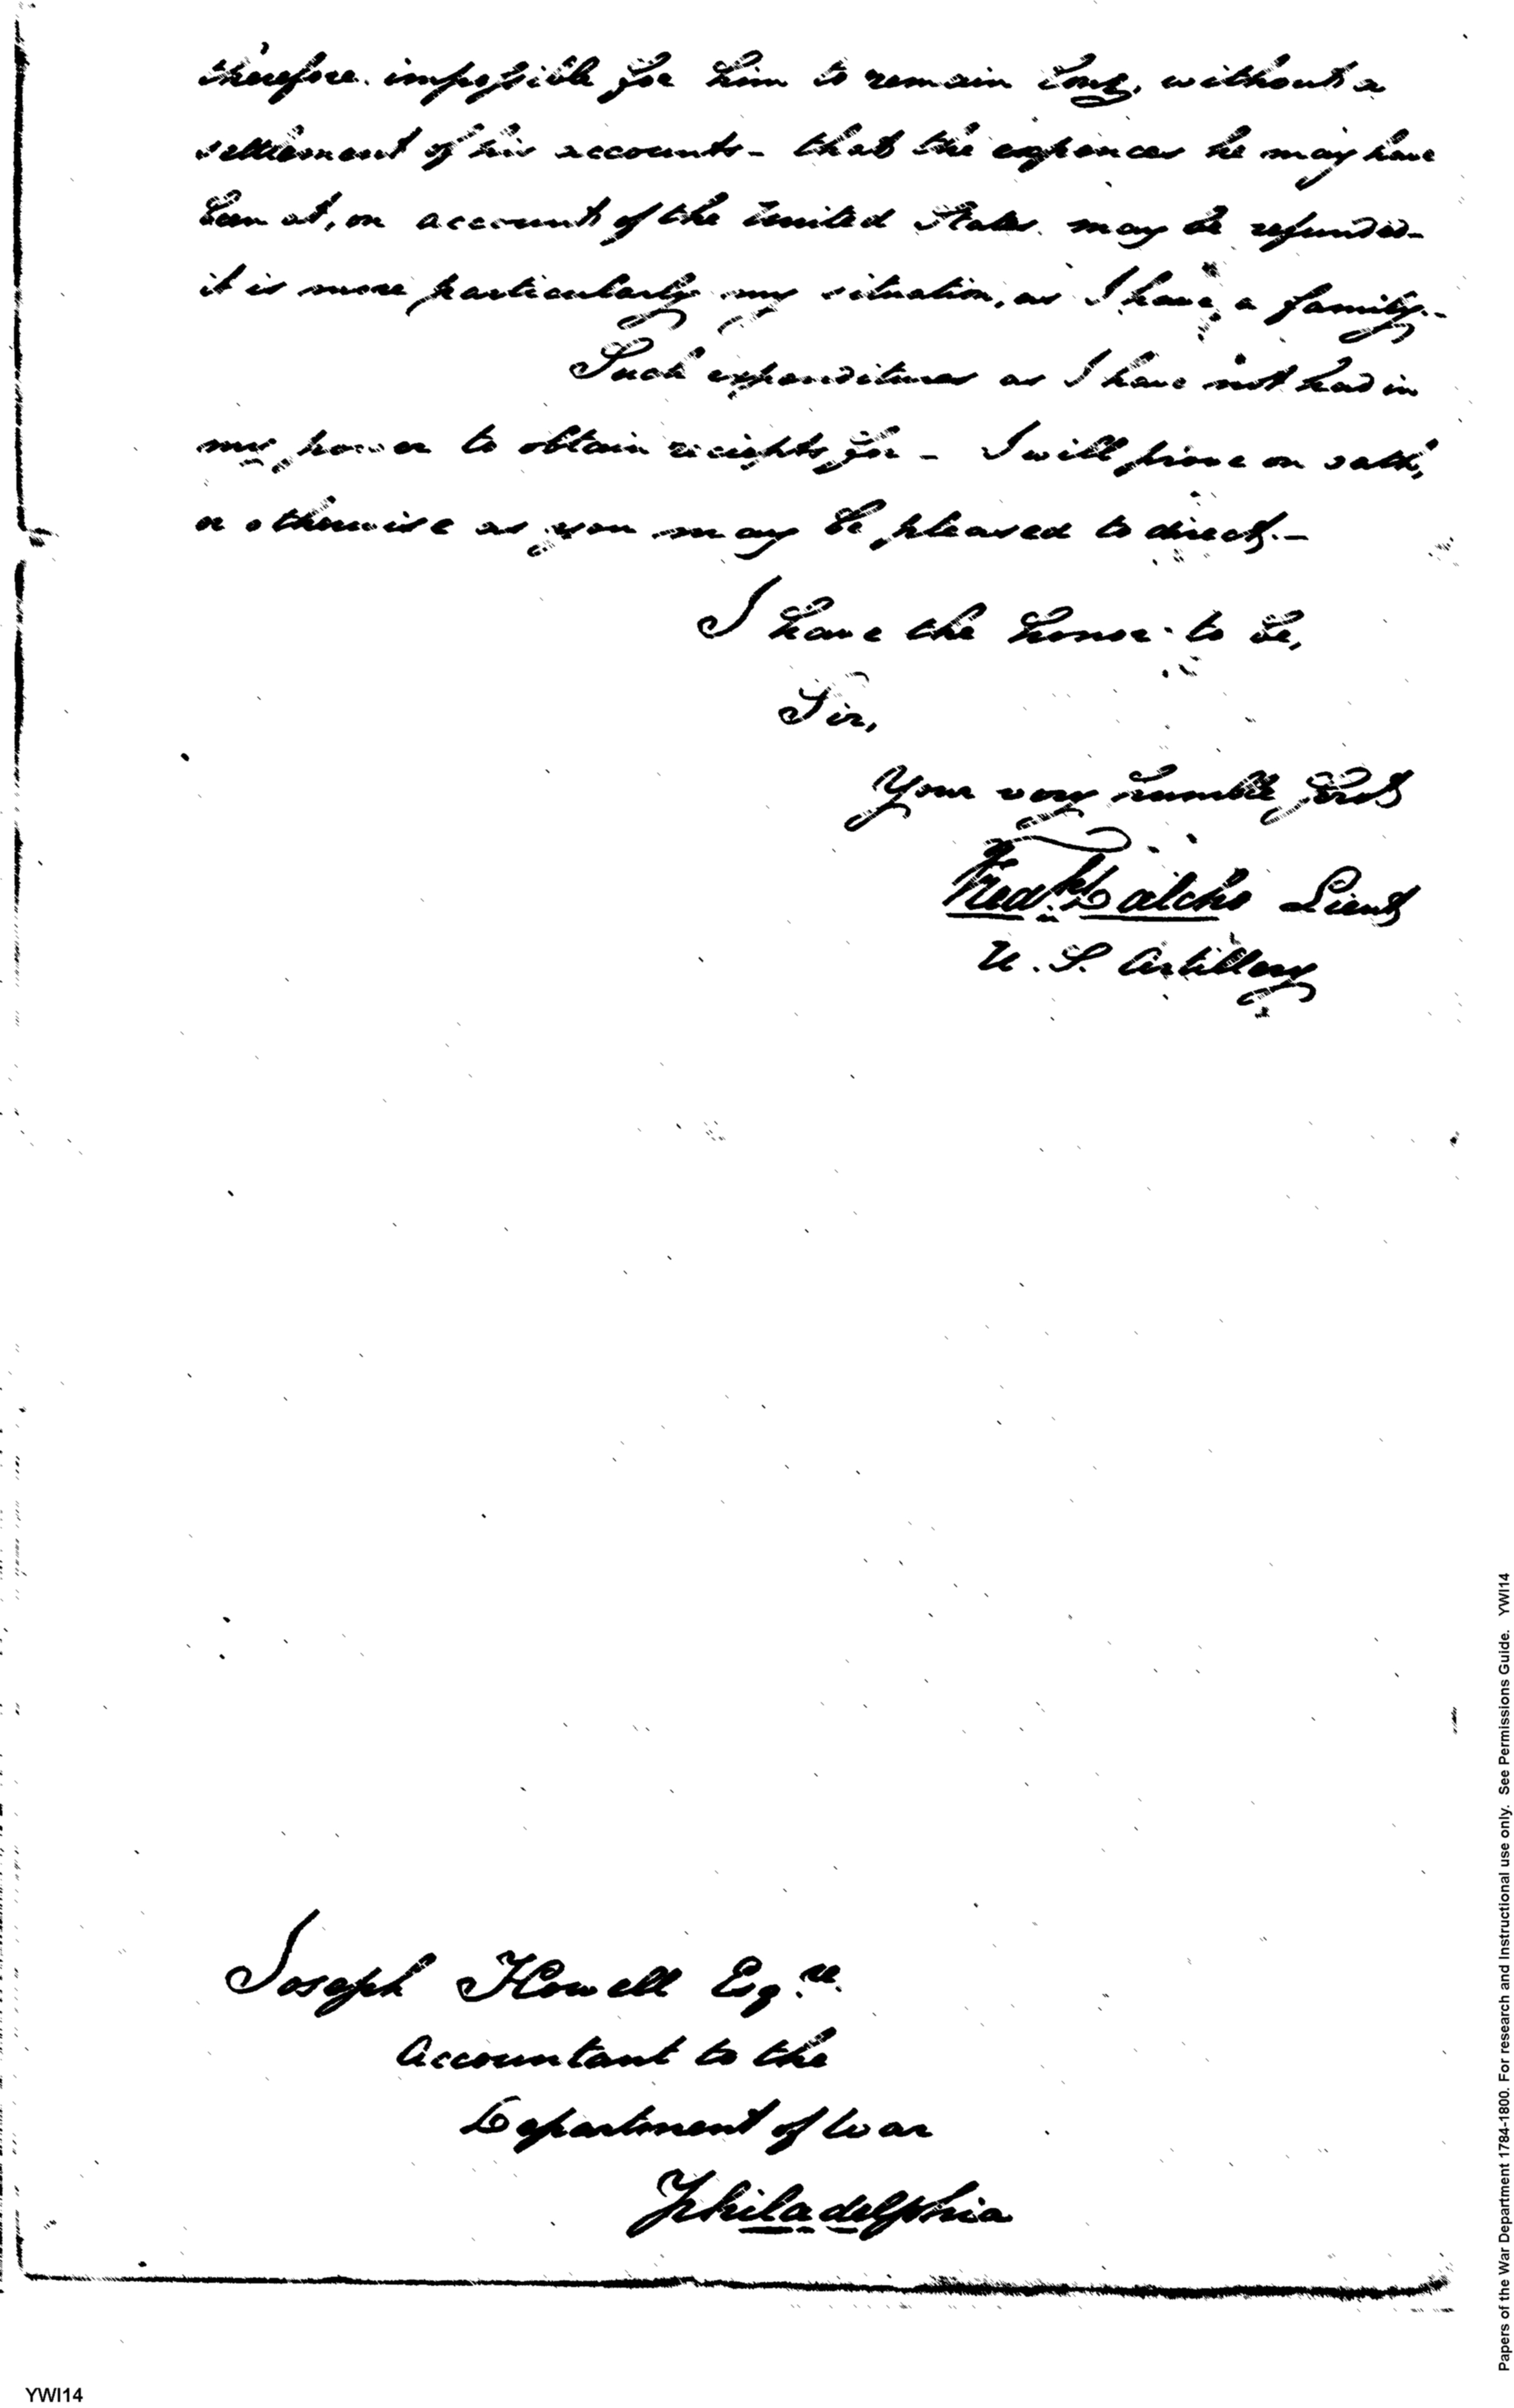 therefore impossible for him to remain long, without a
settlement of his accounts - that the expences he may have
been at, on account of the United States may be refunded -
it is more particularly my situation, as I have a family. -
Such expenditures as I have not had in
my power to obtain reciepts for - I will prove on oath,
or otherwise as you may be pleased to direct. -
I have the honor to be,
Sir,
Your very humble Servt
Fredk Dalcho Lieut
U. S. Artillery
Joseph Howell Esqre.
Accountant to the
Department of War
Philadelphia
Papers of the War Department 1784-1800. For research and Instructional use only. See Permissions Guide. YWI14
YWI14